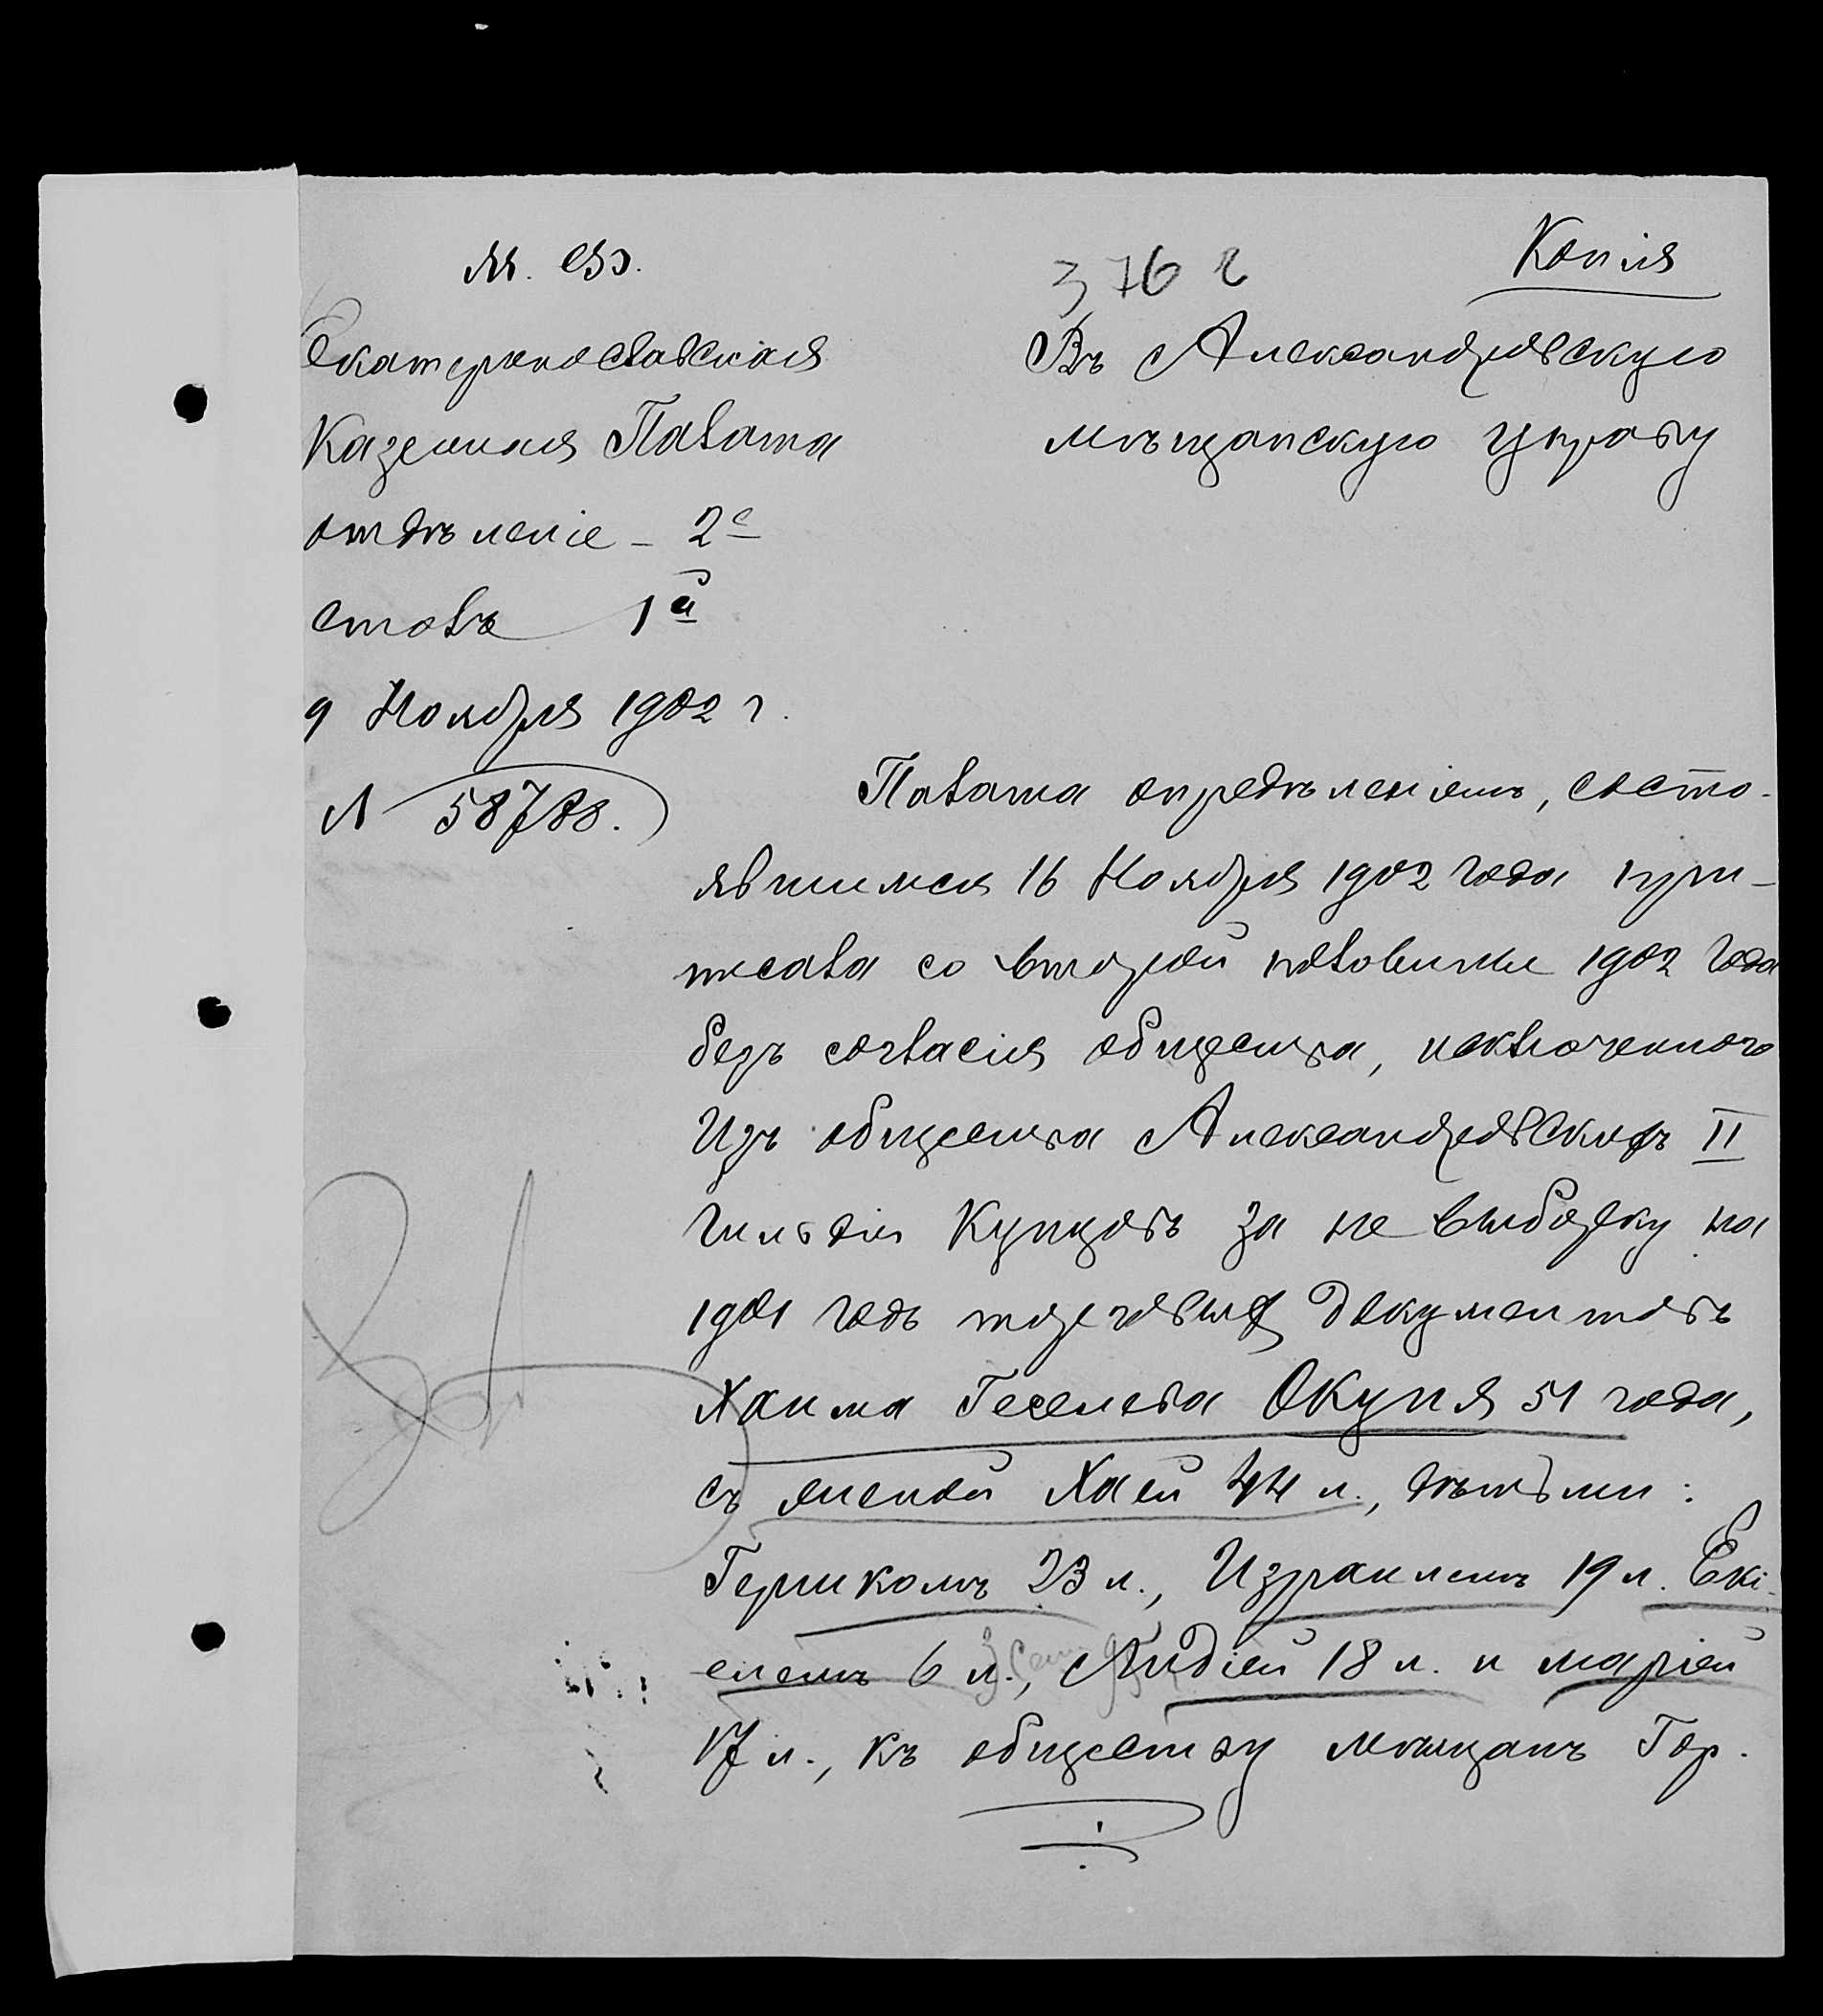 М. Ф.
376 2
Копія
Екатеринославская
Казенная Палата
отдѣленіе - 2е
столъ 1й
9 Ноября 1902 г.
№ 58788.
Въ Александровскую
мѣщанскую управу
Палата опредѣленіемъ, состо-
явшимся 16 Ноября 1902 года при-
писала со второй половины 1902 года
безъ согласія общества, исключеннаго
Изъ общества Александровскихъ II
гильдіи Купцовъ за не выборку на
1901 годъ торговыхъ документовъ
Хаима Геселева Окуня 51 года,
съ женой Хаей 44 л., дѣтьми:
Гершкомъ 23 л., Израилемъ 19 л. Екі-
елемъ 6 л., Лидіей 18 л. и Маріей
17 л., къ обществу мѣщанъ Гор.